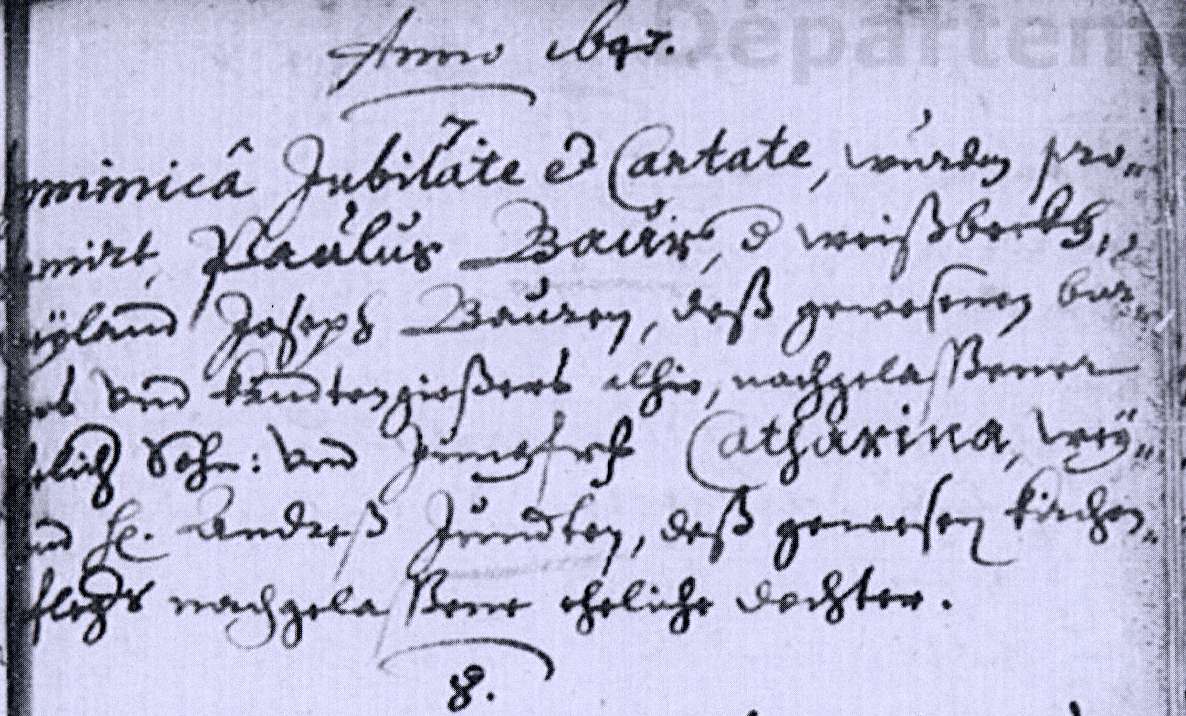 Départem
Anno 16
7
minicâ Jubilate et Cantate, wurden pro-
mirt, Paulus Baur, d weißbeckh,
eyland Joseph Bauren, deß gewesenen bur-
ers vnd kandtengießers alhie, nachgelaßener
elich Sohn: vnd Jungfr Catharina, wey-
nd H. Andreß Jundten, deß gewesen kirchen-
flegers nachgelaßene eheliche dochter.
8.